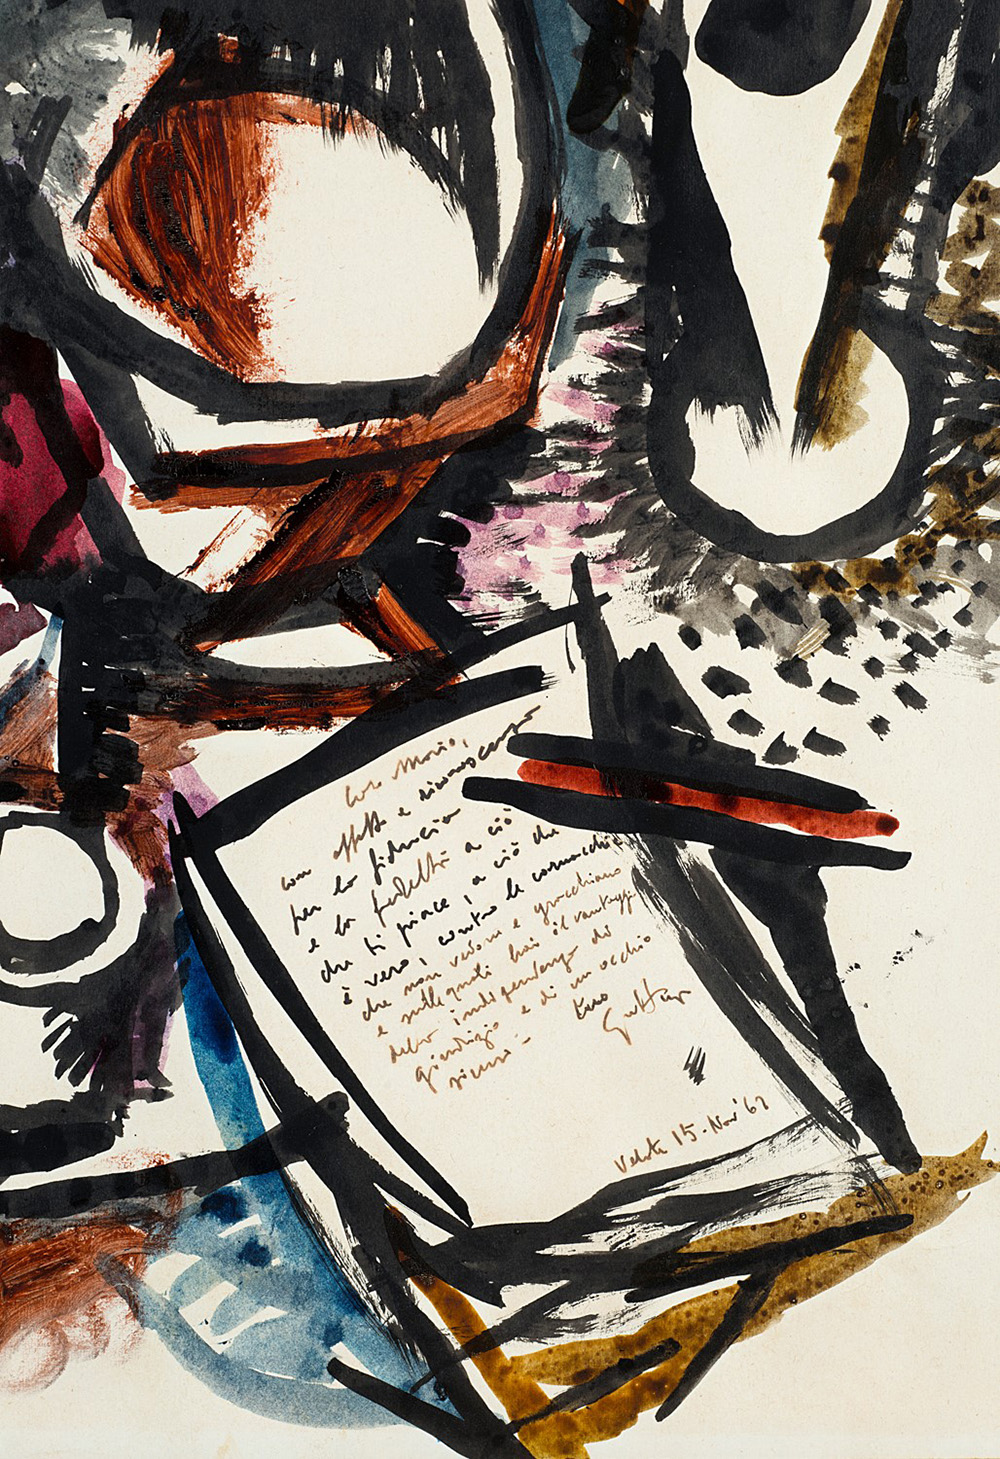 Caro Mario,
con affetto e riconoscenza
per la fiducia
e la fedeltà a ciò
che ti piace, a ciò che
è vero, contro le cornacchie
che non vedono e gracchiano
e sulle quali hai il vantaggio
della indipendenza di
giudizio e di un occhio
sicuro -
tuo
Guttuso
Velate 15-Nov '62